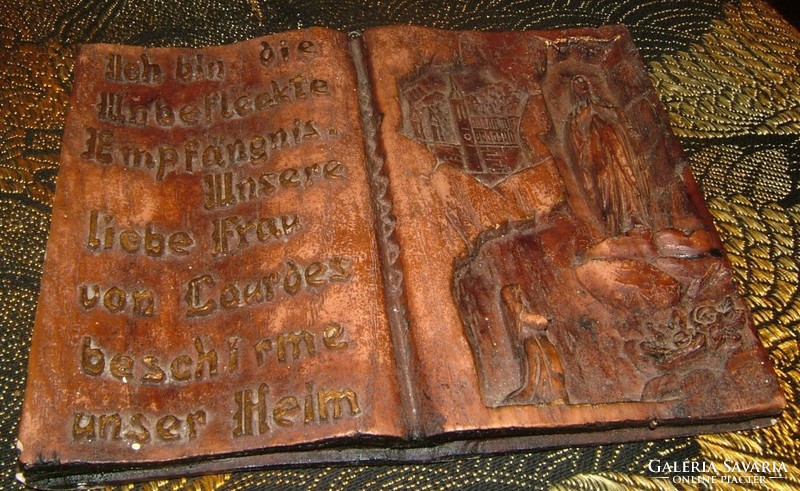 Ich bin die
Unbefleckte
Empfängnis.
Unsere
liebe Frau
von Lourdes
beschirme
unser Heim
GALERIA SAVARIA
ONLINE PIACTÉR